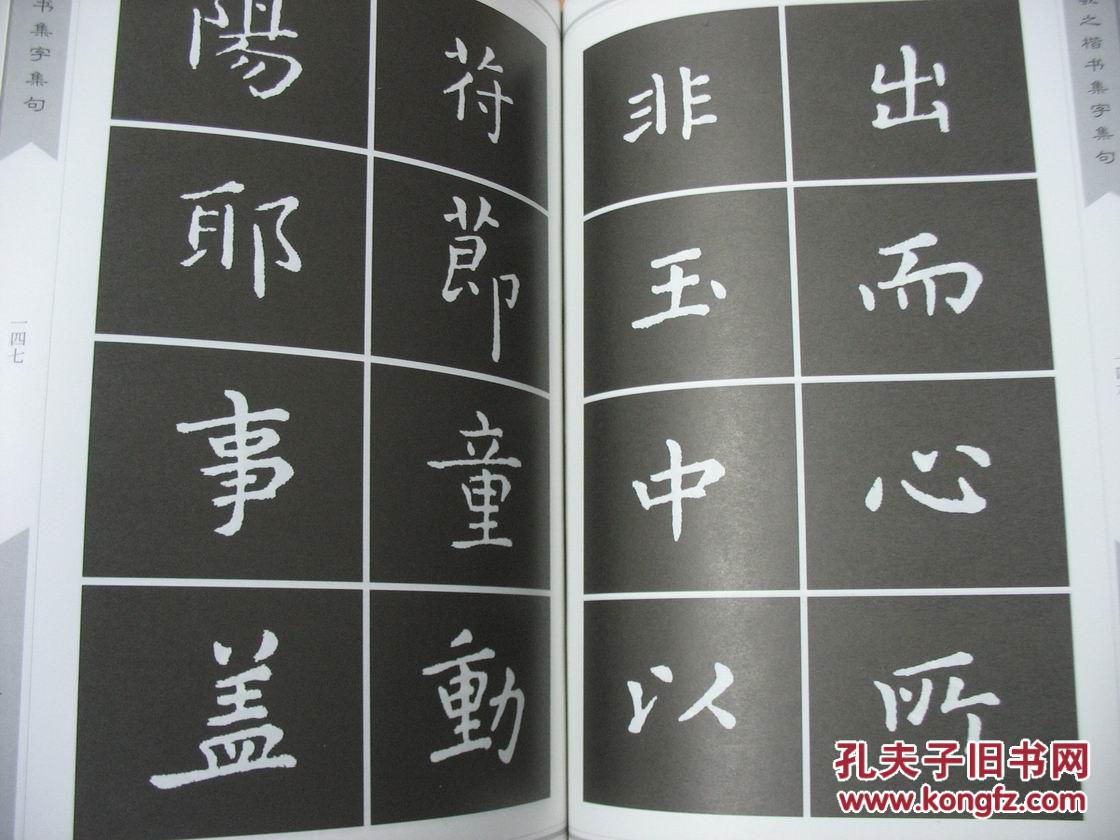 之楷书集字集句
出而心所
非玉中以
苻莭童動
陽耶事盖
书集字集句
一四七
孔夫子旧书网
www.kongfz.com